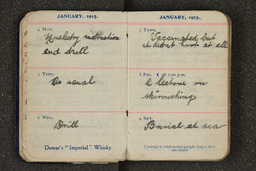 JANUARY, 1915.
4 MON.
Musketry instruction
and drill
5 TUES.
As usual
6 WED.
Drill
Dewar's "Imperial" Whisky.
JANUARY, 1915.
7 THUR.
Vaccinated but
it didnt hurt at all
8 FRI.
A lecture on
skirmishing
9 SAT.
Burial at sea